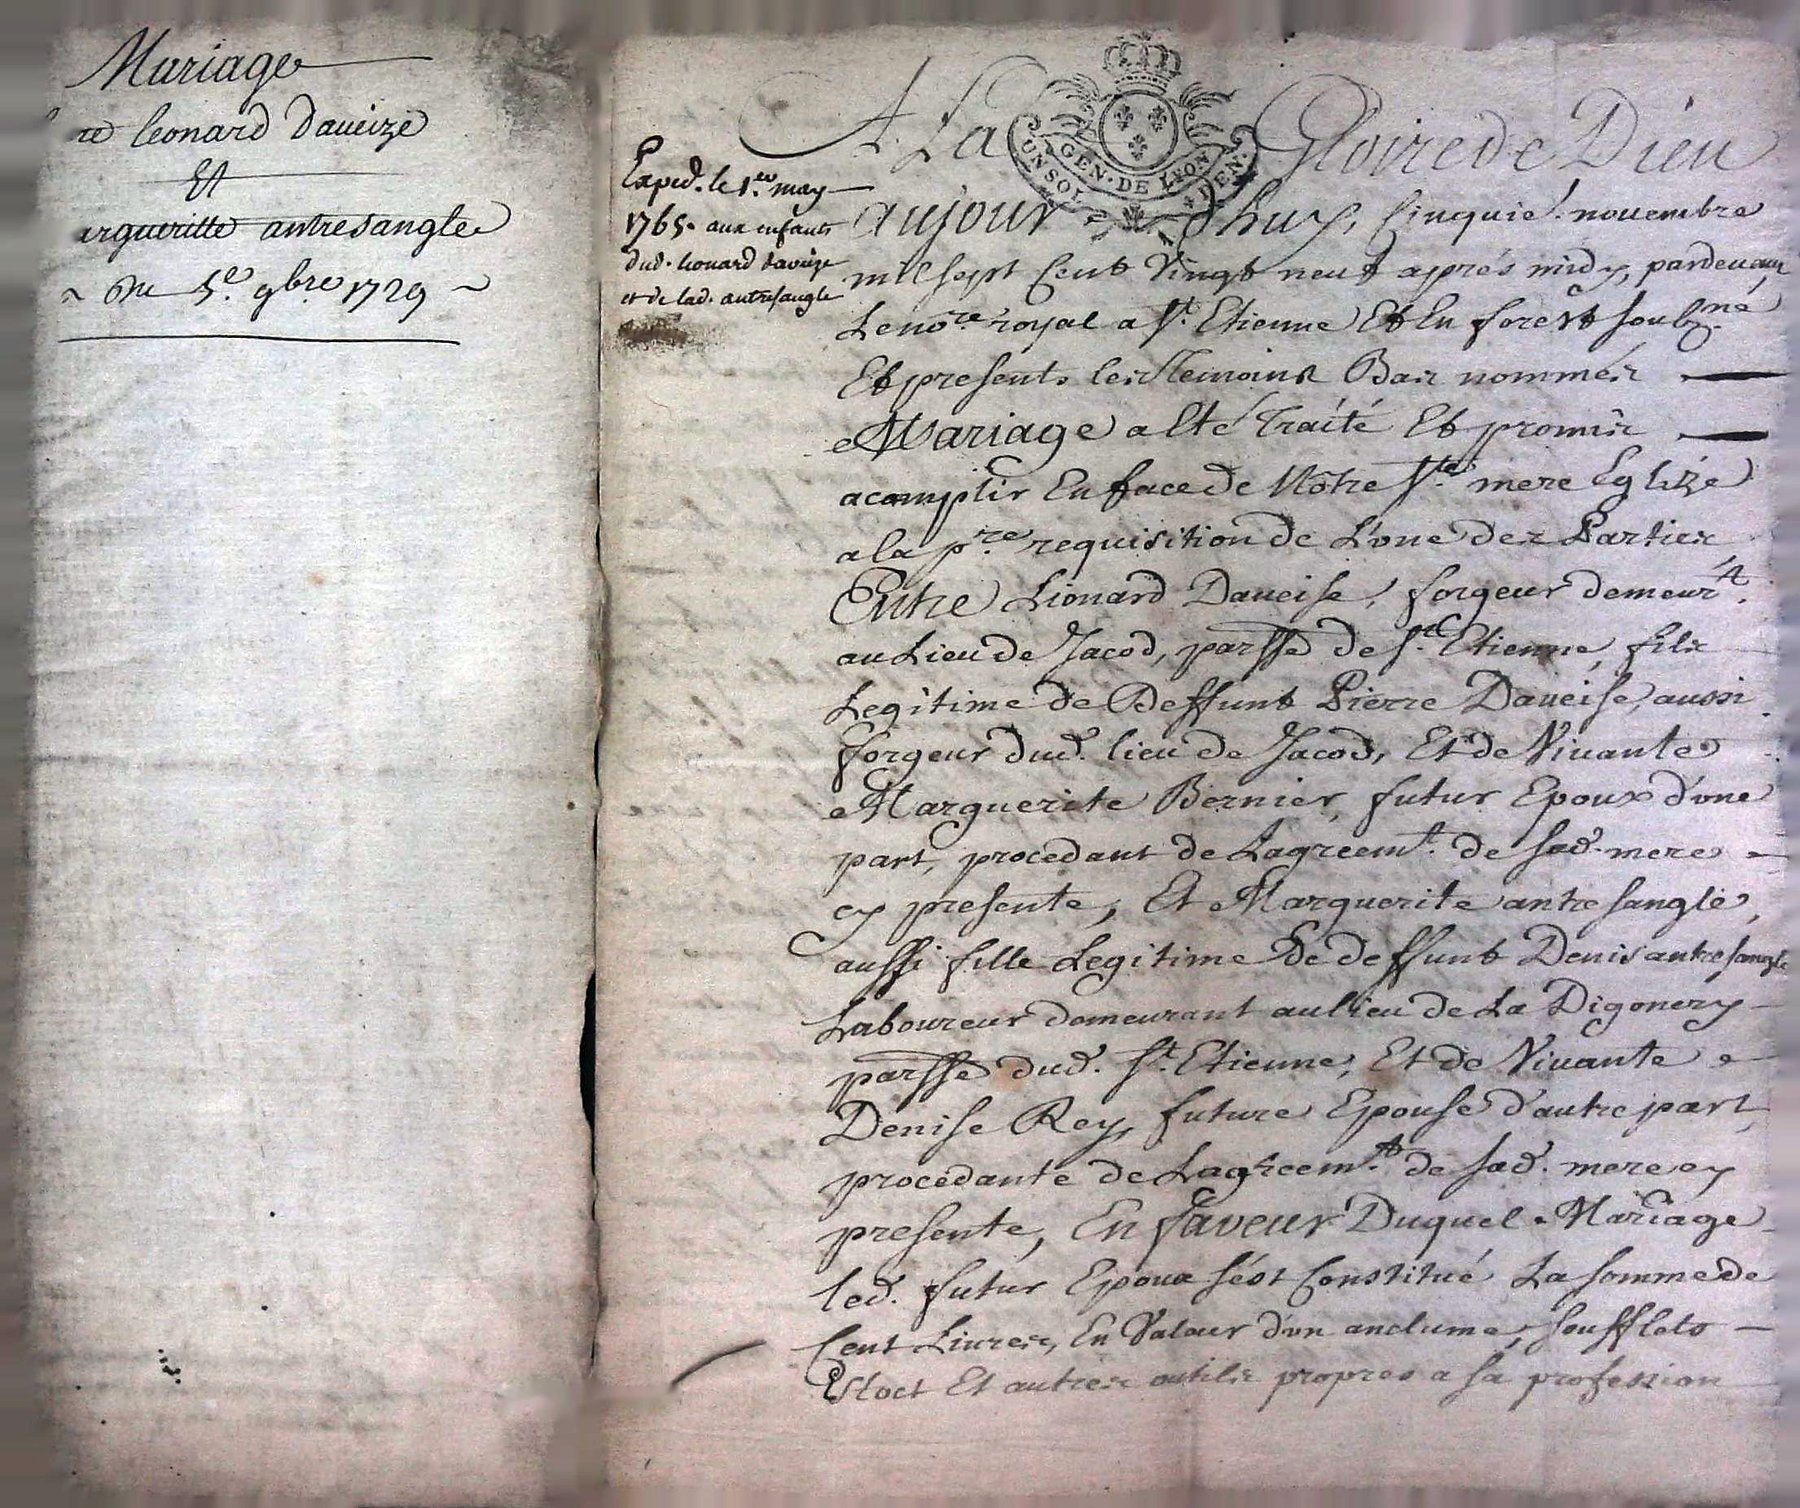 Mariage
re leonard daveize
Et
argueritte antresangle
~ Du 5.e 9bre 1729 ~
Exped. le 1.er may
1765. aux enfants
dud. leonard daveize
et de lad. antresangle
A La Gloire de Dieu
GEN. DE LYON
UN SOL
DEN.
aujourdhuy, Cinquié. novembre
mil sept Cent Vingt neuf aprés midy, pardevant
Le no.re royal a S.t Etienne Et En forest soubz.né
Et presents les Temoins Bas nommés
Mariage a Eté Traité Et promis
acomplir En face de Nôtre S.te mere Eglize
a la p.re requisition de L'une des Parties
Entre Lionard Daveise, forgeur demeur.t
au Lieu de Jacod, parsse de S.t Etienne, fils
Legitime de Deffunt Pierre Daveise, aussi
forgeur dud. lieu de Jacod, Et de Vivante
Marguerite Bernier, futur Epoux d'une
part, procedant de Lagreem.t de sad. mere
cy presente, Et Marguerite antresangle,
aussi fille Legitime De deffunt Denis antresangle
Laboureur demeurant au lieu de La Digonery
parsse dud. S.t Etienne, Et de Vivante
Denise Rey, future Epouse d'autre part,
procedante de Lagreem.t de sad. mere cy
presente, En faveur Duquel Mariage
led. futur Epoux sést Constitué La somme de
Cent Livres, En Valeur d'un anclume, soufflets
Et autres outils propres a sa profession